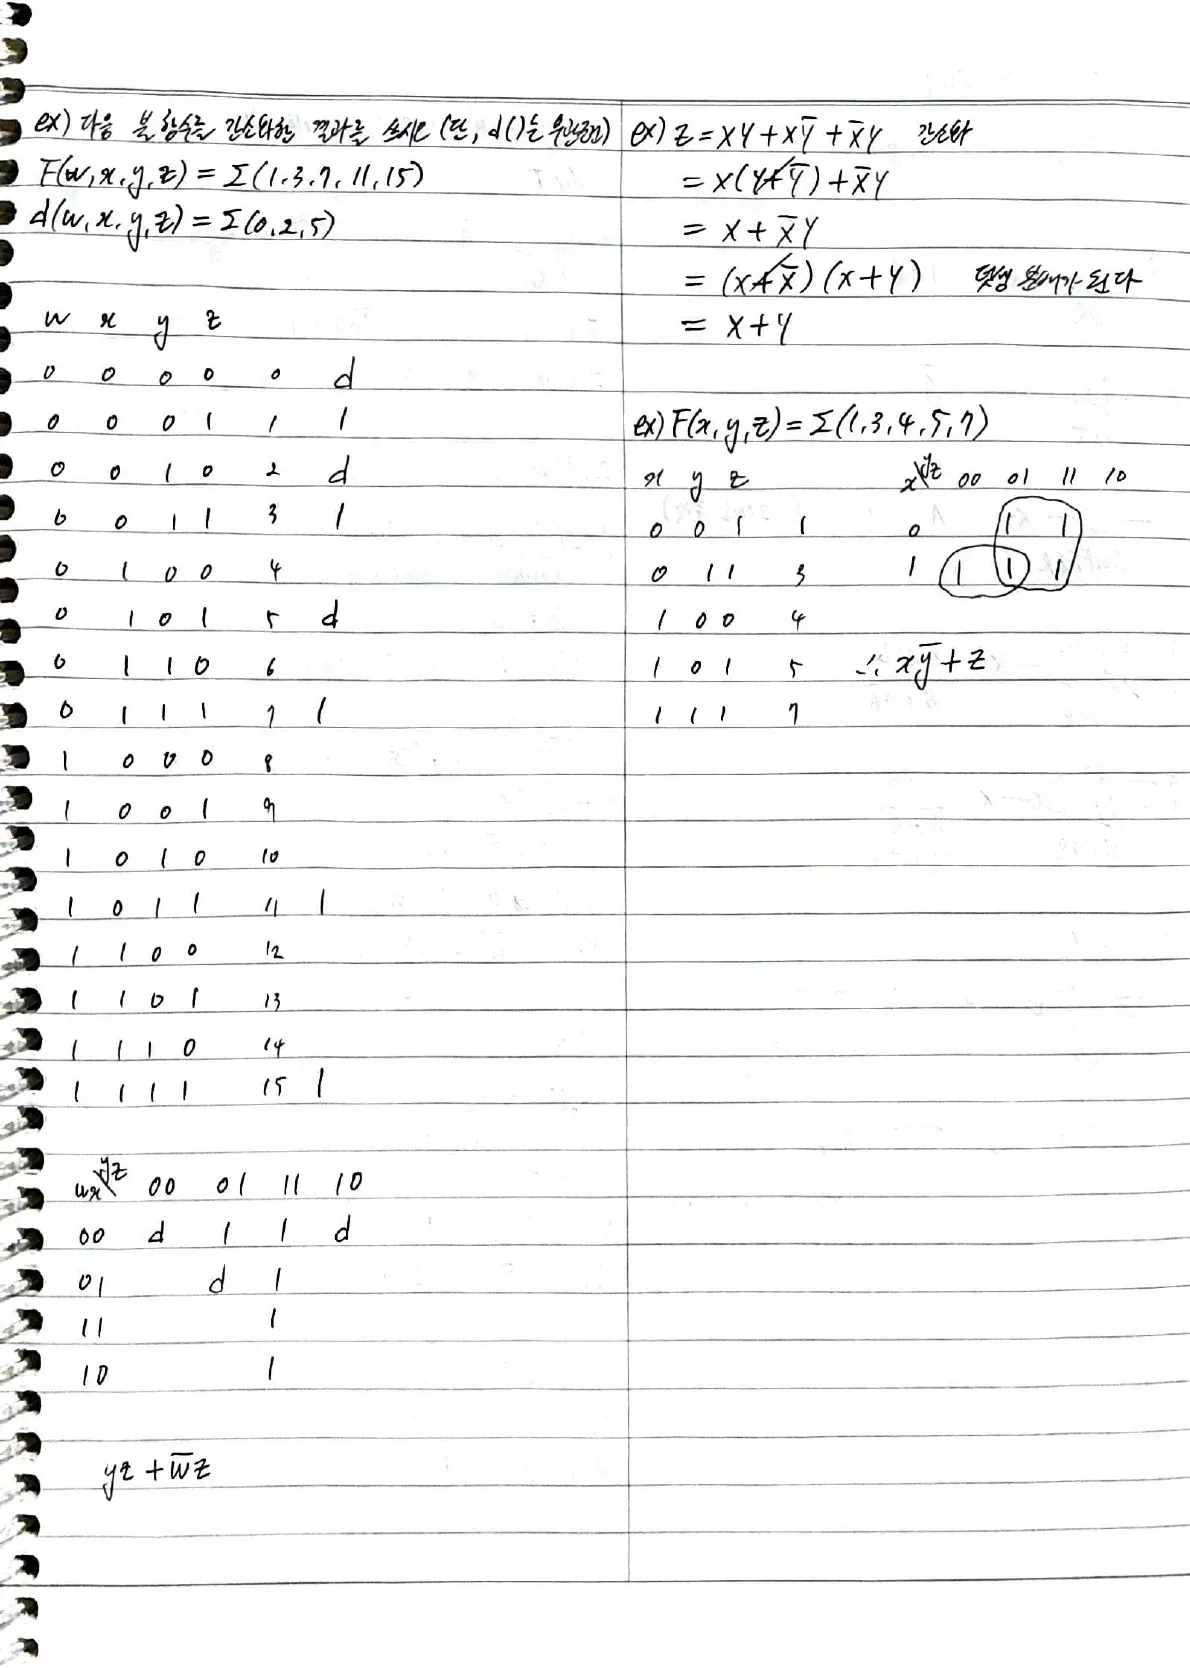 ex) 다음 불 함수를 간소화한 결과를 쓰시오 (단, d()는 무관조건)
F(w,x,y,z) = Σ(1,3,7,11,15)
d(w,x,y,z) = Σ(0,2,5)
w x y z
0 0 0 0 0 d
0 0 0 1 1 1
0 0 1 0 2 d
0 0 1 1 3 1
0 1 0 0 4
0 1 0 1 5 d
0 1 1 0 6
0 1 1 1 7 1
1 0 0 0 8
1 0 0 1 9
1 0 1 0 10
1 0 1 1 11 1
1 1 0 0 12
1 1 0 1 13
1 1 1 0 14
1 1 1 1 15 1
wx\yz 00 01 11 10
00 d 1 1 d
01 d 1
11 1
10 1
yz + w̅z
ex) Z = XY + XY̅ + X̅Y 간소화
= X(Y+Y̅) + X̅Y
= X + X̅Y
= (X+X̅)(X+Y) 덧셈 분배가 된다
= X+Y
ex) F(x,y,z) = Σ(1,3,4,5,7)
x y z
0 0 1 1
0 1 1 3
1 0 0 4
1 0 1 5
1 1 1 7
x\yz 00 01 11 10
0 1 1
1 1 1 1
∴ xy̅ + z